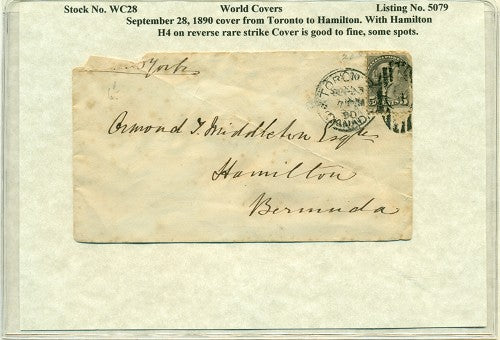 Stock No. WC28 World Covers Listing No. 5079
September 28, 1890 cover from Toronto to Hamilton. With Hamilton
H4 on reverse rare strike Cover is good to fine, some spots.
York
TORON
90
CANADA
Ormond T. Middleton Esq
Hamilton
Bermuda